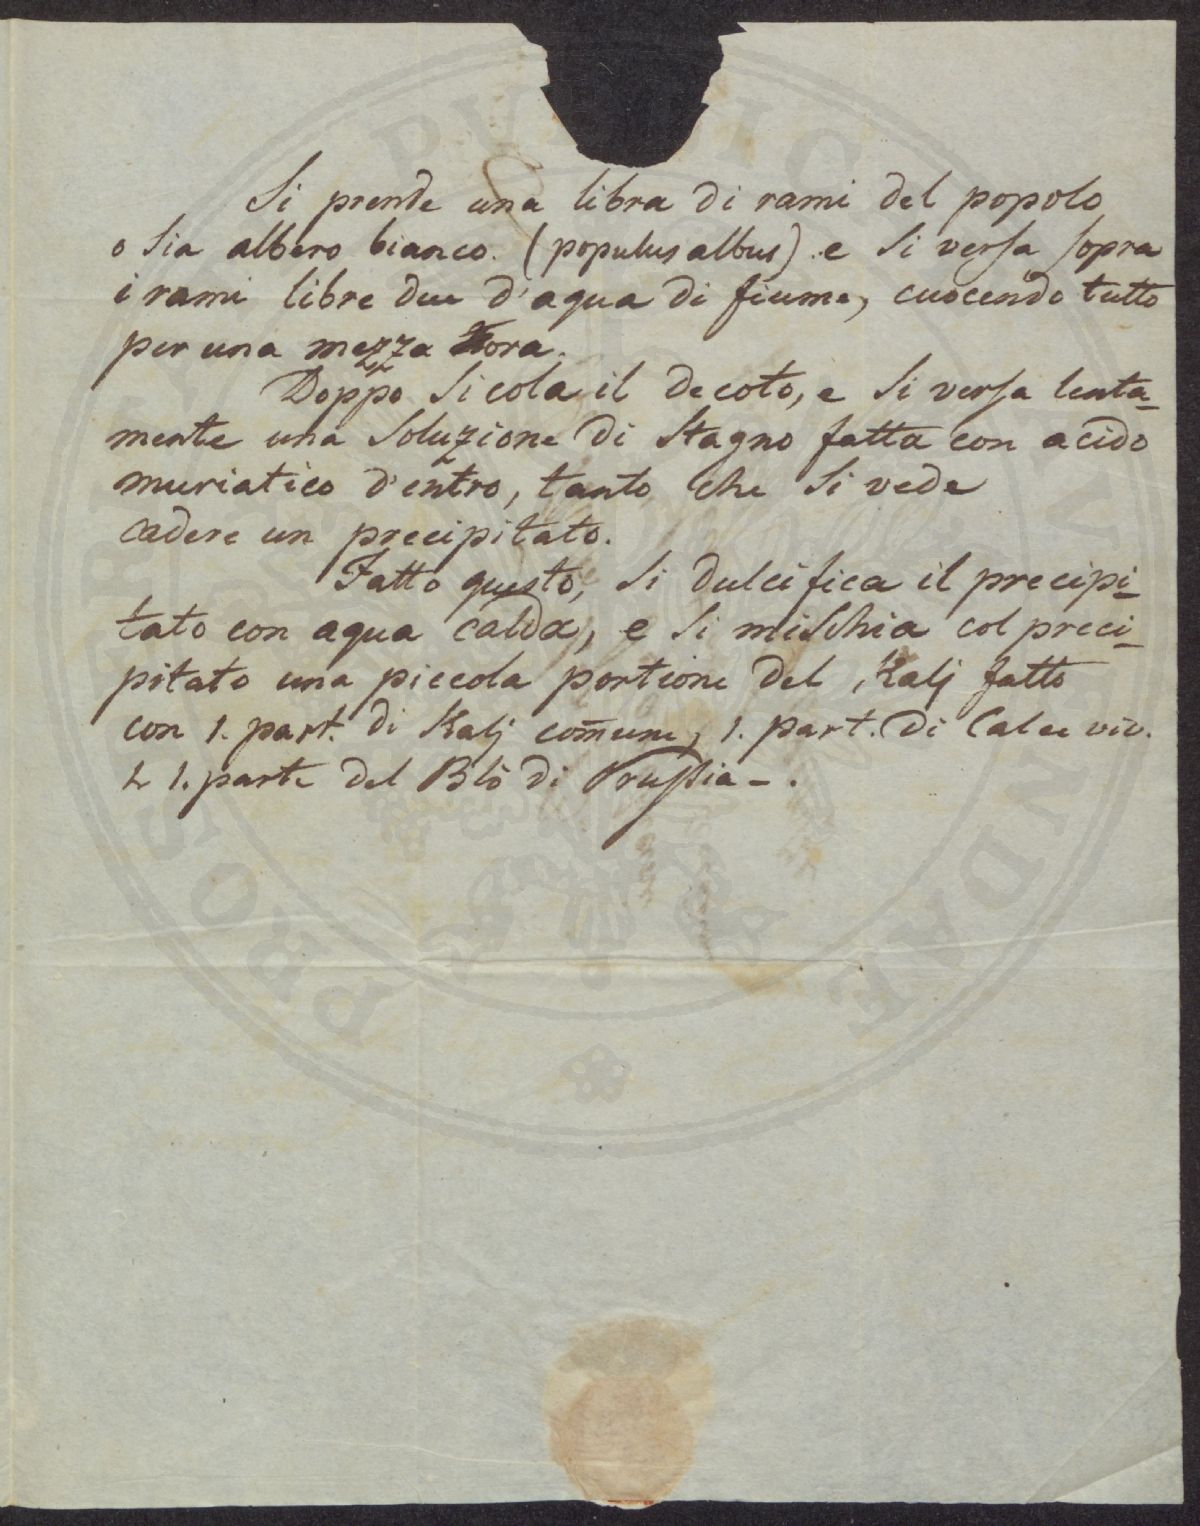 Si prende una libra di rami del popolo
o sia albero bianco. (populus albus) e si versa sopra
i rami libre due d'aqua di fiume, cuocendo tutto
per una mezza hora.
Doppo si cola il decoto, e si versa lenta-
mente una soluzione di stagno fatta con acido
muriatico d'entro, tanto che si vede
cadere un precipitato.
Fatto questo, si dulcifica il precipi-
tato con aqua calda, e si mischia col preci-
pitato una piccola portione del Kalj fatto
con 1. part. di Kalj com̄une, 1. part. di Calce viv.
1. parte del Blò di Prussia -.
PVBLICAE
VTENDAE
PROS